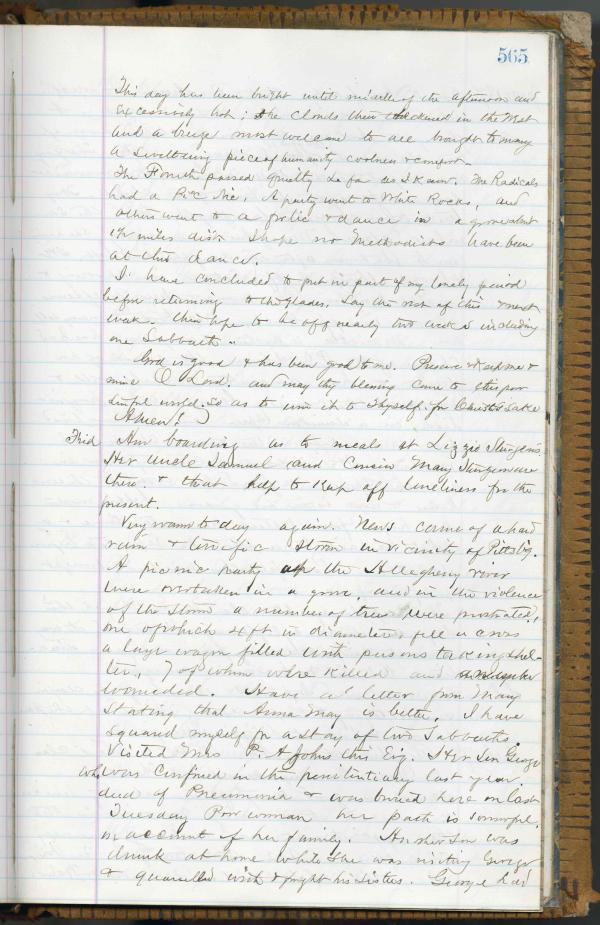 565
This day has been bright until middle of the afternoon and
excessively hot; the clouds then thickened in the West
and a breeze most welcome to all brought to many
a sweltering piece of humanity coolness & comfort.
The Fourth passed quietly so far as I know. The Radicals
had a Pic Nic. A party went to White Rocks, and
others went to a frolic & dance in a grove about
1½ miles dist. I hope no Methodists have been
at this dance.
I have concluded to put in part of my lonely period
before returning to the glades, say the rest of this & next
week. Then hope to be off nearly two weeks including
one Sabbath.
God is good & has been good to me. Preserve & keep me &
mine O Lord. and may thy blessing come to this poor
sinful world. So as to win it to Thyself. for Christ's sake
Amen!
Frid Am boarding as to meals at Lizzie Sturgeon's
Her Uncle Samuel and Cousin Mary Sturgeon are
there. & that help to keep off loneliness for the
present.
Very warm to day again. News came of a hard
rain & terrific storm in vicinity of Pittsbg.
A pic nic party up the Allegheny river
were overtaken in a grove, and in the violence
of the storm a number of trees were prostrated,
one of which 4 ft in diameter fell across
a large wagon filled with persons taking shel-
ter, 7 of whom were killed and a number
wounded. Have a letter from Mary
stating that Anna May is better. I have
squared myself for a stay of two Sabbaths.
Visited Mrs P. A Johns this Evg. Her Son George
who was confined in the penitentiary last year.
died of Pneumonia & was buried here on last
Tuesday Poor woman her path is sorrowful,
on account of her family. Another Son was
drunk at home while she was visiting George
& quarrelled with & fought his sisters. George had